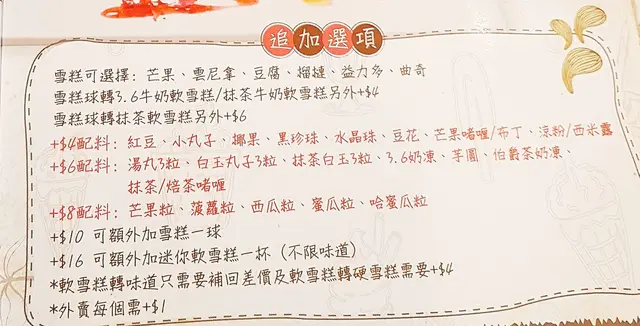 追加選項
雪糕可選擇：芒果、雲尼拿、豆腐、榴槤、益力多、曲奇
雪糕球轉3.6牛奶軟雪糕/抹茶牛奶軟雪糕另外+$4
雪糕球轉抹茶軟雪糕另外+$6
+$4配料：紅豆、小丸子、椰果、黑珍珠、水晶珠、豆花、芒果啫喱/布丁、涼粉/西米露
+$6配料：湯丸3粒、白玉丸子3粒、抹茶白玉3粒、3.6奶凍、芋圓、伯爵茶奶凍、
抹茶/焙茶啫喱
+$8配料：芒果粒、菠蘿粒、西瓜粒、蜜瓜粒、哈蜜瓜粒
+$10 可額外加雪糕一球
+$16 可額外加迷你軟雪糕一杯（不限味道）
*軟雪糕轉味道只需要補回差價及軟雪糕轉硬雪糕需要+$4
*外賣每個需+$1